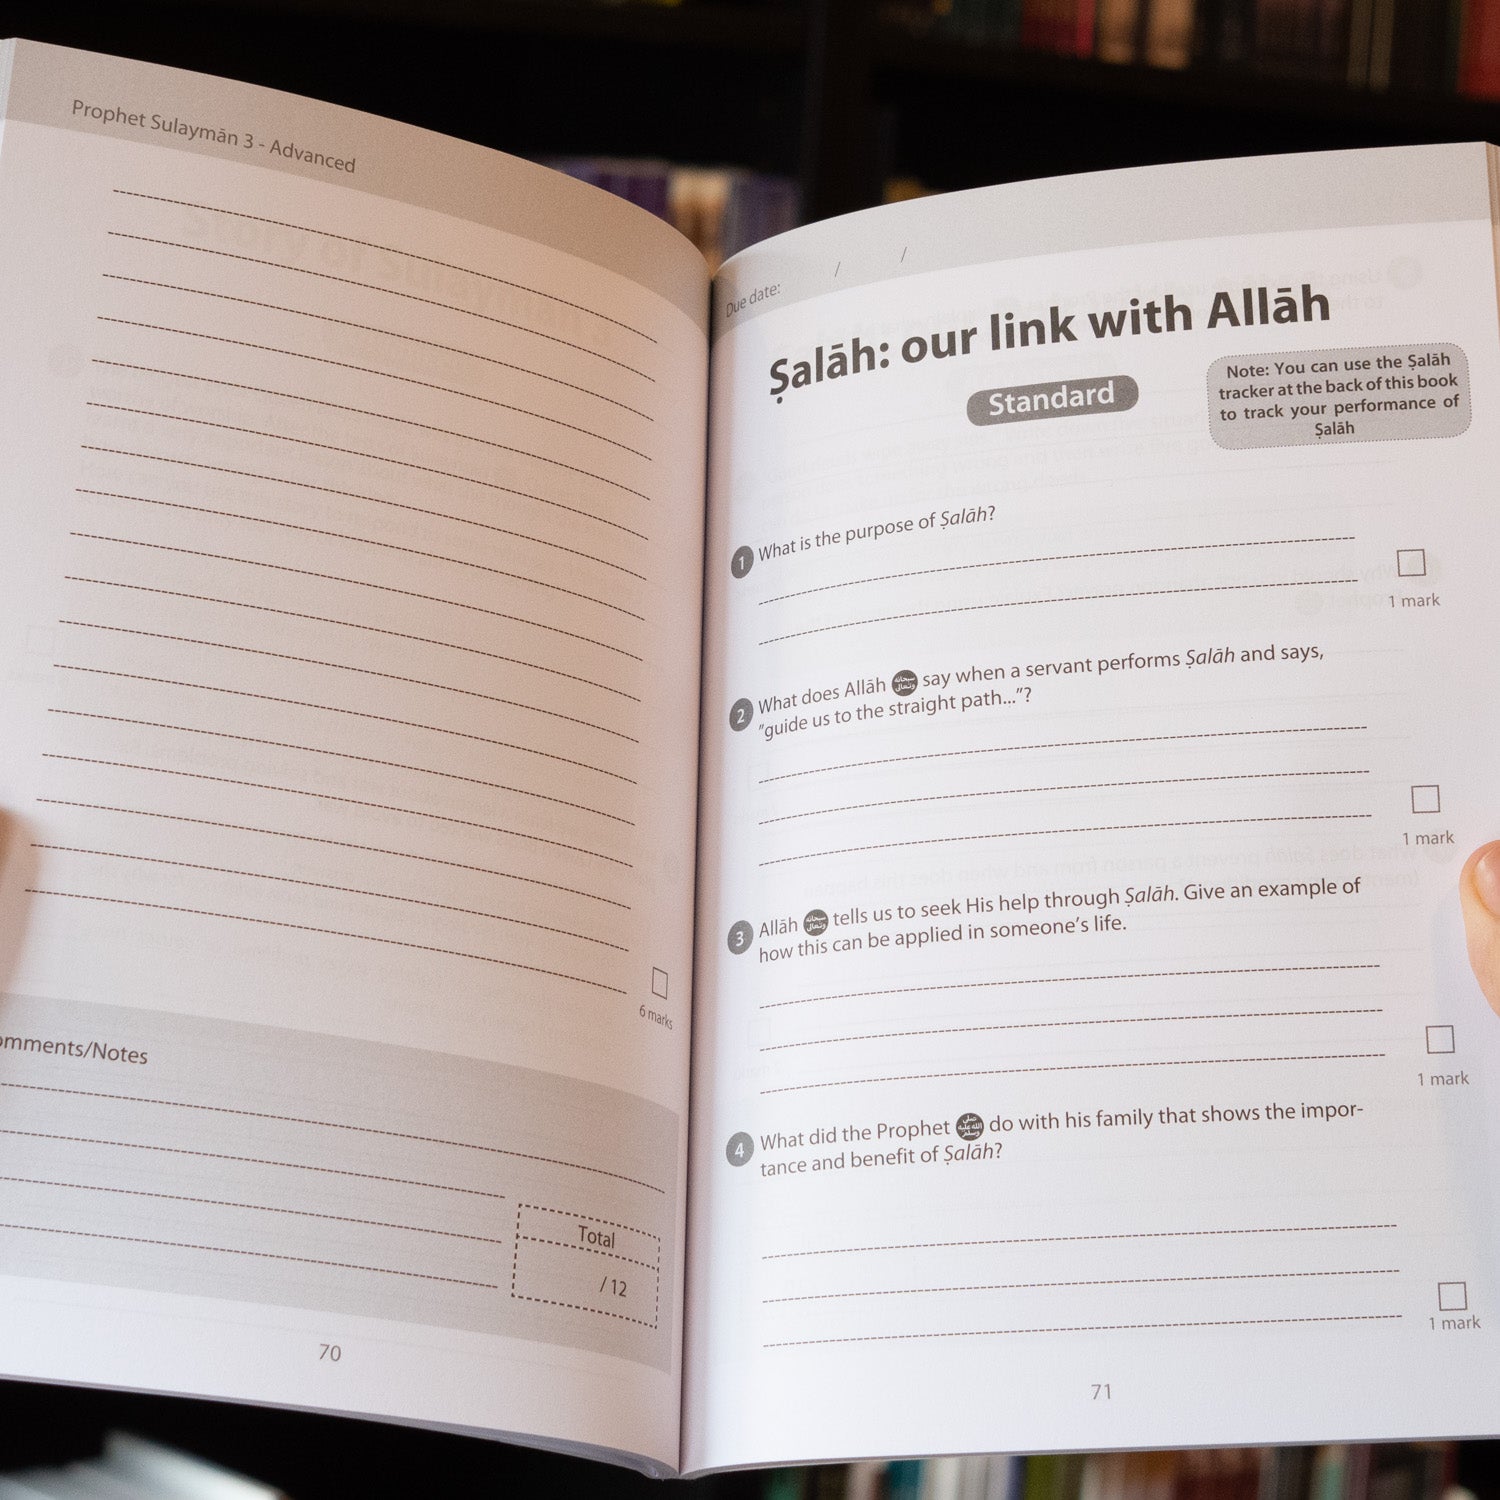 Prophet Sulaymān 3 - Advanced
6 marks
omments/Notes
Total
/ 12
70
Due date: / /
Ṣalāh: our link with Allāh
Standard
Note: You can use the Ṣalāh
tracker at the back of this book
to track your performance of
Ṣalāh
1 What is the purpose of Ṣalāh?
1 mark
2 What does Allāh سبحانه وتعالى say when a servant performs Ṣalāh and says,
"guide us to the straight path..."?
1 mark
3 Allāh سبحانه وتعالى tells us to seek His help through Ṣalāh. Give an example of
how this can be applied in someone's life.
1 mark
4 What did the Prophet صلى الله عليه وسلم do with his family that shows the impor-
tance and benefit of Ṣalāh?
1 mark
71